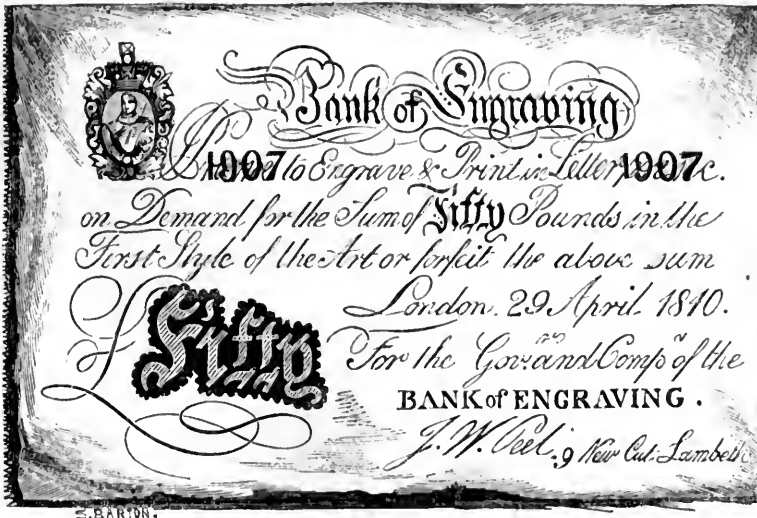 Bank of Engraving
1907 to Engrave & Print in Letter 1907 &c.
on Demand for the Sum of Fifty Pounds in the
First Style of the Art or forfeit the above sum
London. 29 April. 1810.
£ Fifty
For the Gov. and Comp.ª of the
BANK of ENGRAVING.
J. W. Peel. 9 New Cut. Lambeth
S. BARTON.